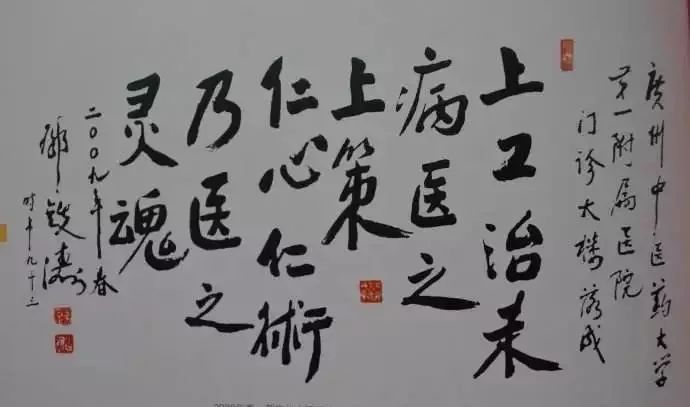 廣州中医药大学
第一附属医院
门诊大楼落成
上工治未
病医之
上策
仁心仁術
乃医之
灵魂
二〇〇九年春
邓铁涛
时年九十三